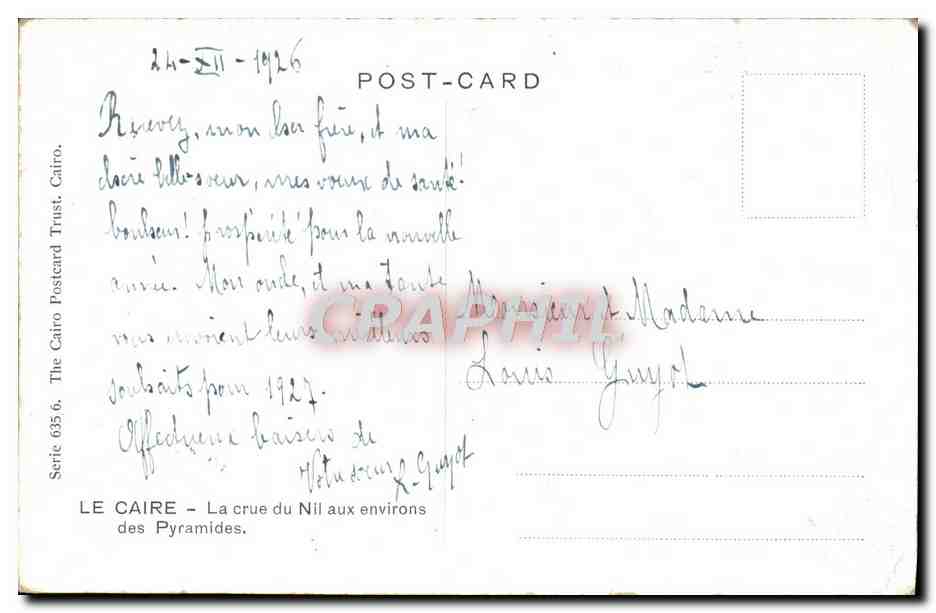 24-XII-1926
POST-CARD
Recevez, mon cher frère, et ma
chère belle-sœur, mes vœux de santé!
bonheur! prospérité pour la nouvelle
année. Mon oncle, et ma tante
vous envoient leurs meilleurs
souhaits pour 1927.
Affectueux baisers de
Votre sœur
Guyot
Monsieur et Madame
Louis Guyot
LE CAIRE - La crue du Nil aux environs
des Pyramides.
Serie 635 6. The Cairo Postcard Trust. Cairo.
CRAPHIL